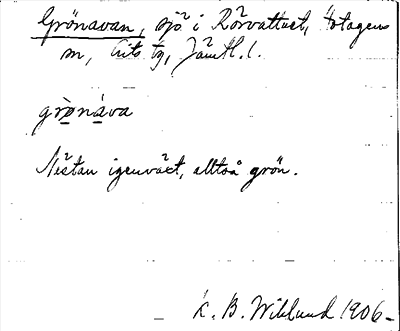 Grönavan, sjö i Rörvattnet, Hotagens
sn, Lits tg, Jämtl. l.
grònáva
Nästan igenväxt, alltså grön.
K. B. Wiklund 1906